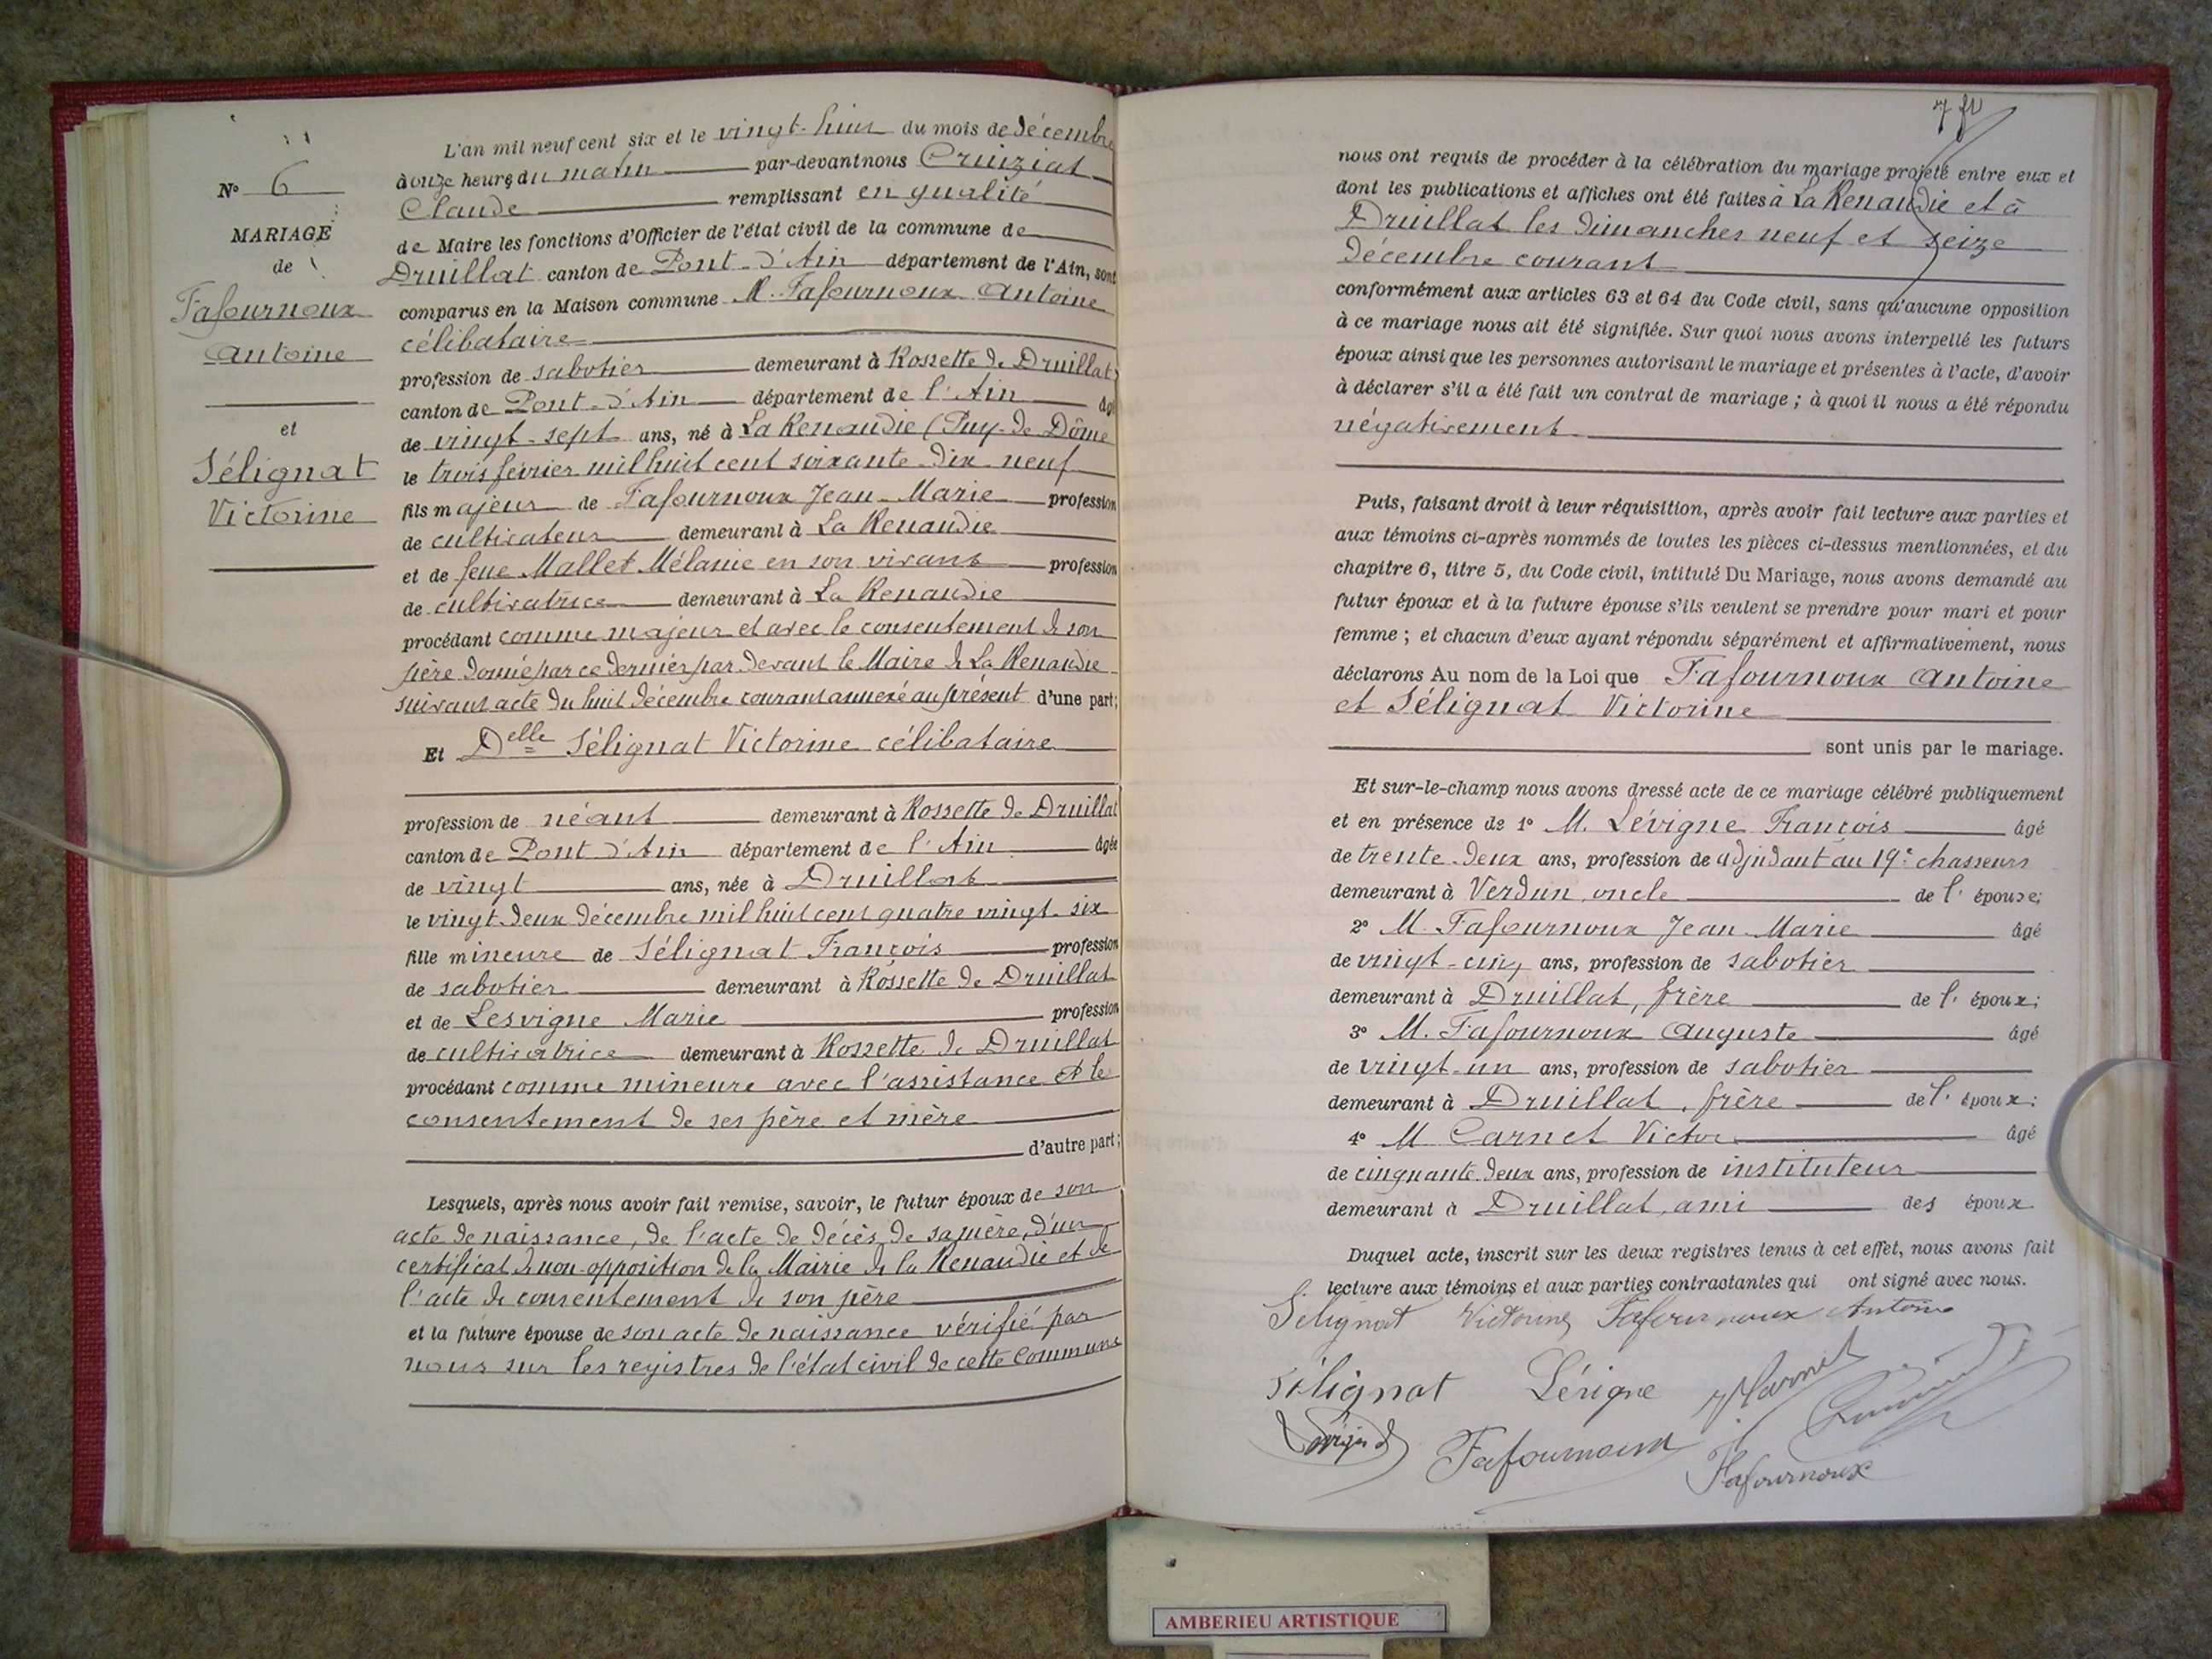 N° 6
MARIAGE
de
Fafournoux
Antoine
et
Sélignat
Victorine
L'an mil neuf cent six et le vingt-huit du mois de décembre
à onze heures du matin par-devant nous Cruiziat
Claude remplissant en qualité
de Maire les fonctions d'Officier de l'état civil de la commune de
Druillat canton de Pont-d'Ain département de l'Ain, sont
comparus en la Maison commune M. Fafournoux Antoine
célibataire
profession de sabotier demeurant à Rossette de Druillat
canton de Pont-d'Ain département de l'Ain âgé
de vingt-sept ans, né à La Renaudie (Puy-de Dôme
le trois février mil huit cent soixante-dix-neuf
fils majeur de Fafournoux Jean-Marie profession
de cultivateur demeurant à La Renaudie
et de feue Mallet Mélanie en son vivant profession
de cultivatrice demeurant à La Renaudie
procédant comme majeur et avec le consentement de son
père donné par ce dernier par devant le Maire de La Renaudie
suivant acte du huit décembre courant annexé au présent d'une part;
Et Delle Sélignat Victorine célibataire
profession de néant demeurant à Rossette de Druillat
canton de Pont d'Ain département de l'Ain âgée
de vingt ans, née à Druillat
le vingt-deux décembre mil huit cent quatre vingt-six
fille mineure de Sélignat François profession
de sabotier demeurant à Rossette de Druillat
et de Lesvigne Marie profession
de cultivatrice demeurant à Rossette de Druillat
procédant comme mineure avec l'assistance et le
consentement de ses père et mère
d'autre part;
Lesquels, après nous avoir fait remise, savoir, le futur époux de son
acte de naissance, de l'acte de décès de sa mère, d'un
certificat de non-opposition de la Mairie de la Renaudie et de
l'acte de consentement de son père
et la future épouse de son acte de naissance vérifié par
nous sur les registres de l'état civil de cette commune
nous ont requis de procéder à la célébration du mariage projeté entre eux et
dont les publications et affiches ont été faites à La Renaudie et à
Druillat les dimanches neuf et seize
décembre courant
conformément aux articles 63 et 64 du Code civil, sans qu'aucune opposition
à ce mariage nous ait été signifiée. Sur quoi nous avons interpellé les futurs
époux ainsi que les personnes autorisant le mariage et présentes à l'acte, d'avoir
à déclarer s'il a été fait un contrat de mariage ; à quoi il nous a été répondu
négativement
Puis, faisant droit à leur réquisition, après avoir fait lecture aux parties et
aux témoins ci-après nommés de toutes les pièces ci-dessus mentionnées, et du
chapitre 6, titre 5, du Code civil, intitulé Du Mariage, nous avons demandé au
futur époux et à la future épouse s'ils veulent se prendre pour mari et pour
femme ; et chacun d'eux ayant répondu séparément et affirmativement, nous
déclarons Au nom de la Loi que Fafournoux Antoine
et Sélignat Victorine
sont unis par le mariage.
Et sur-le-champ nous avons dressé acte de ce mariage célébré publiquement
et en présence de 1° M. Lévigne François âgé
de trente-deux ans, profession de adjudant au 19e chasseurs
demeurant à Verdun, oncle de l'épouse;
2° M. Fafournoux Jean-Marie âgé
de vingt-cinq ans, profession de sabotier
demeurant à Druillat, frère de l'époux;
3° M. Fafournoux Auguste âgé
de vingt-un ans, profession de sabotier
demeurant à Druillat, frère de l'époux;
4° M Carnet Victor âgé
de cinquante-deux ans, profession de instituteur
demeurant à Druillat, ami des époux
Duquel acte, inscrit sur les deux registres tenus à cet effet, nous avons fait
lecture aux témoins et aux parties contractantes qui ont signé avec nous.
Sélignat Victorine Fafournoux Antoine
Sélignat Lévigne
Fafournoux Fafournoux
AMBERIEU ARTISTIQUE